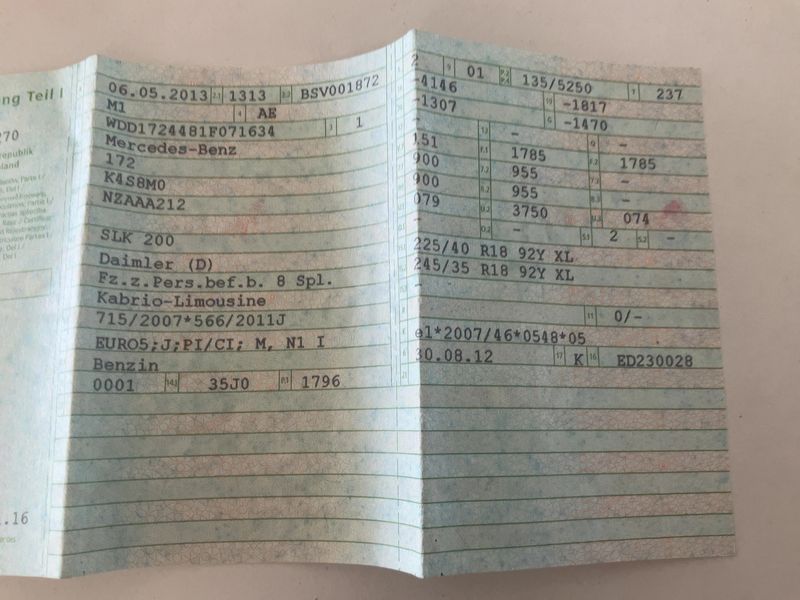 ng Teil I
270
epublik
land
.16
06.05.2013 2.1 1313 2.2 BSV001872
M1 4 AE
WDD1724481F071634 3 1
Mercedes-Benz
172
K4S8M0
NZAAA212
SLK 200
Daimler (D)
Fz.z.Pers.bef.b. 8 Spl.
Kabrio-Limousine
715/2007*566/2011J
EURO5;J;PI/CI; M, N1 I
Benzin
0001 14.1 35J0 P.1 1796
2 9 01 P.2 P.4 135/5250 T 237
-4146 19 -1817
-1307 G -1470
51 13 - Q -
900 F.1 1785 F.2 1785
900 7.2 955 7.3 -
079 8.2 955 8.3 -
- U.2 3750 U.3 074
O.2 - S.1 2 S.2 -
225/40 R18 92Y XL
245/35 R18 92Y XL
-
11 0/-
e1*2007/46*0548*05
30.08.12 17 K 16 ED230028